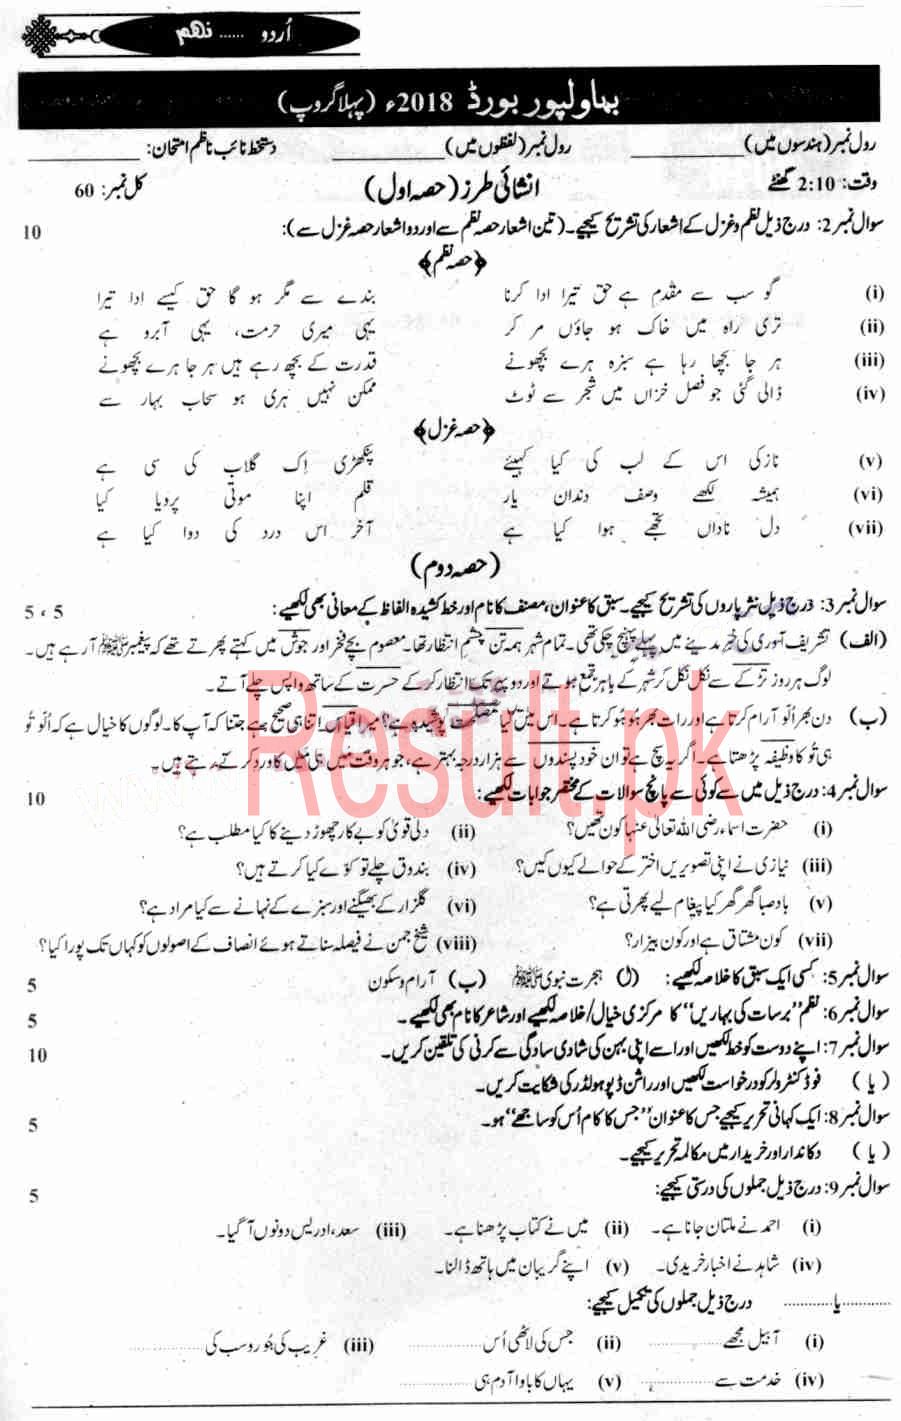 اُردو ...... نہم
بہاولپور بورڈ 2018ء (پہلا گروپ)
رول نمبر (ہندسوں میں) ________ رول نمبر (لفظوں میں) ________ دستخط نائب ناظم امتحان: ________
وقت: 2:10 گھنٹے انشائی طرز (حصہ اول) کل نمبر: 60
سوال نمبر 2: درج ذیل نظم و غزل کے اشعار کی تشریح کیجیے۔ (تین اشعار حصہ نظم سے اور دو اشعار حصہ غزل سے): 10
﴿حصہ نظم﴾
(i) گو سب سے مقدم ہے حق تیرا ادا کرنا بندے سے مگر ہو گا حق کیسے ادا تیرا
(ii) تری راہ میں خاک ہو جاؤں مر کر یہی میری حرمت، یہی آبرو ہے
(iii) ہر جا بچھا رہا ہے سبزہ ہرے بچھونے قدرت کے بچھ رہے ہیں ہر جا ہرے بچھونے
(iv) ڈالی گئی جو فصل خزاں میں شجر سے ٹوٹ ممکن نہیں ہری ہو سحاب بہار سے
﴿حصہ غزل﴾
(v) نازکی اس کے لب کی کیا کہیئے پنکھڑی اِک گلاب کی سی ہے
(vi) ہمیشہ لکھے وصف دندان یار قلم اپنا موتی پرویا کیا
(vii) دل ناداں تجھے ہوا کیا ہے آخر اس درد کی دوا کیا ہے
(حصہ دوم)
سوال نمبر 3: درج ذیل نثر پاروں کی تشریح کیجیے۔ سبق کا عنوان، مصنف کا نام اور خط کشیدہ الفاظ کے معانی بھی لکھیے: 5 ، 5
(الف) تشریف آوری کی خبر مدینے میں پہلے پہنچ چکی تھی۔ تمام شہر ہمہ تن چشمِ انتظار تھا۔ معصوم بچے فخر اور جوش میں کہتے پھرتے تھے کہ پیغمبر ﷺ آ رہے ہیں۔
لوگ ہر روز تڑکے سے نکل نکل کر شہر کے باہر جمع ہوتے اور دوپہر تک انتظار کر کے حسرت کے ساتھ واپس چلے آتے۔
(ب) دن بھر اُلّو آرام کرتا ہے اور رات بھر ہُو ہُو کرتا ہے۔ اس میں کیا مصلحت پوشیدہ ہے؟ میرا قیاس اتنا ہی صحیح ہے جتنا کہ آپ کا۔ لوگوں کا خیال ہے کہ اُلّو تُو
ہی تُو کا وظیفہ پڑھتا ہے۔ اگر یہ سچ ہے تو ان خود پسندوں سے ہزار درجہ بہتر ہے، جو ہر وقت میں ہی میں کا ورد کرتے رہتے ہیں۔
سوال نمبر 4: درج ذیل میں سے کوئی سے پانچ سوالات کے مختصر جوابات لکھیے: 10
(i) حضرت اسماء رضی اللہ تعالیٰ عنہا کون تھیں؟ (ii) دلی قویٰ کو بے کار چھوڑ دینے کا کیا مطلب ہے؟
(iii) نیازی نے اپنی تصویریں اختر کے حوالے کیوں کیں؟ (iv) بندوق چلے تو کوّے کیا کرتے ہیں؟
(v) بادصبا گھر گھر کیا پیغام لیے پھرتی ہے؟ (vi) گلزار کے بھیگنے اور سبزے کے نہانے سے کیا مراد ہے؟
(vii) کون مشتاق ہے اور کون بیزار؟ (viii) شیخ جمن نے فیصلہ سناتے ہوئے انصاف کے اصولوں کو کہاں تک پورا کیا؟
سوال نمبر 5: کسی ایک سبق کا خلاصہ لکھیے: (ا) ہجرت نبوی ﷺ (ب) آرام و سکون 5
سوال نمبر 6: نظم "برسات کی بہاریں" کا مرکزی خیال/خلاصہ لکھیے اور شاعر کا نام بھی لکھیے۔ 5
سوال نمبر 7: اپنے دوست کو خط لکھیں اور اسے اپنی بہن کی شادی سادگی سے کرنی کی تلقین کریں۔ 10
(یا) فوڈ کنٹرولر کو درخواست لکھیں اور راشن ڈپو ہولڈر کی شکایت کریں۔
سوال نمبر 8: ایک کہانی تحریر کیجیے جس کا عنوان "جس کا کام اُس کو ساجھے" ہو۔ 5
(یا) دکاندار اور خریدار میں مکالمہ تحریر کیجیے۔
سوال نمبر 9: درج ذیل جملوں کی درستی کیجیے: 5
(i) احمد نے ملتان جانا ہے۔ (ii) میں نے کتاب پڑھنا ہے۔ (iii) سعد، ادریس دونوں آ گیا۔
(iv) شاہد نے اخبار خریدی۔ (v) اپنے گریبان میں ہاتھ ڈالنا۔
............یا............ درج ذیل جملوں کی تکمیل کیجیے:
(i) آ بیل مجھے ............ (ii) جس کی لاٹھی اُس ............ (iii) غریب کی جُورو سب کی ............
(iv) خدمت سے ............ (v) یہاں کا باوا آدم ہی ............
Result.pk